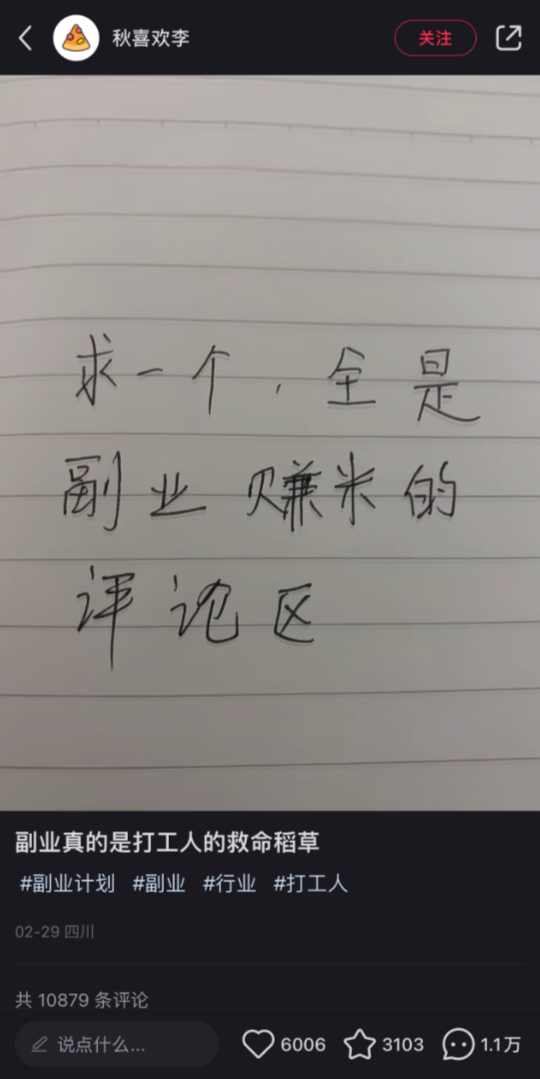 秋喜欢李
关注
求一个，全是
副业赚米的
评论区
副业真的是打工人的救命稻草
#副业计划 #副业 #行业 #打工人
02-29 四川
共 10879 条评论
说点什么... 6006 3103 1.1万